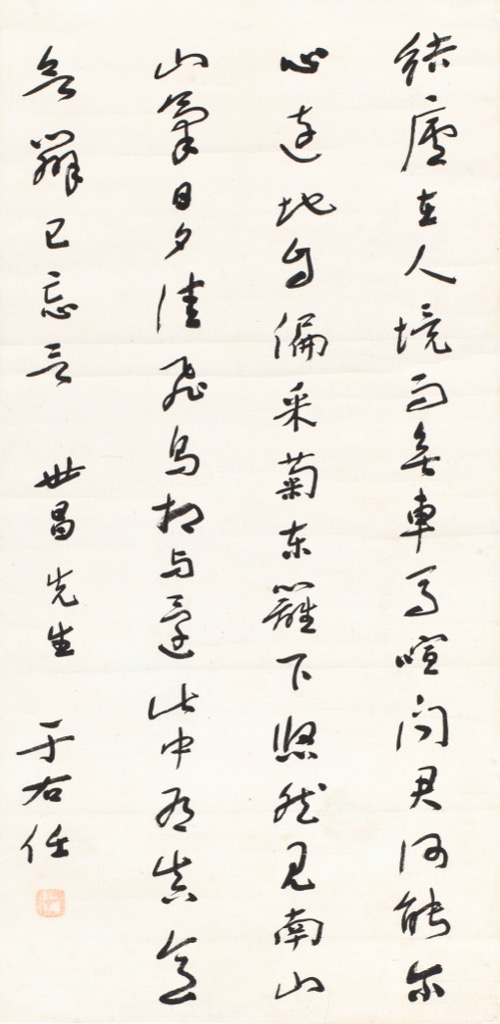 結廬在人境而無車馬喧問君何能尔
心遠地自偏采菊東籬下悠然見南山
山氣日夕佳飛鳥相与還此中有真意
欲辯已忘言 世昌先生 于右任